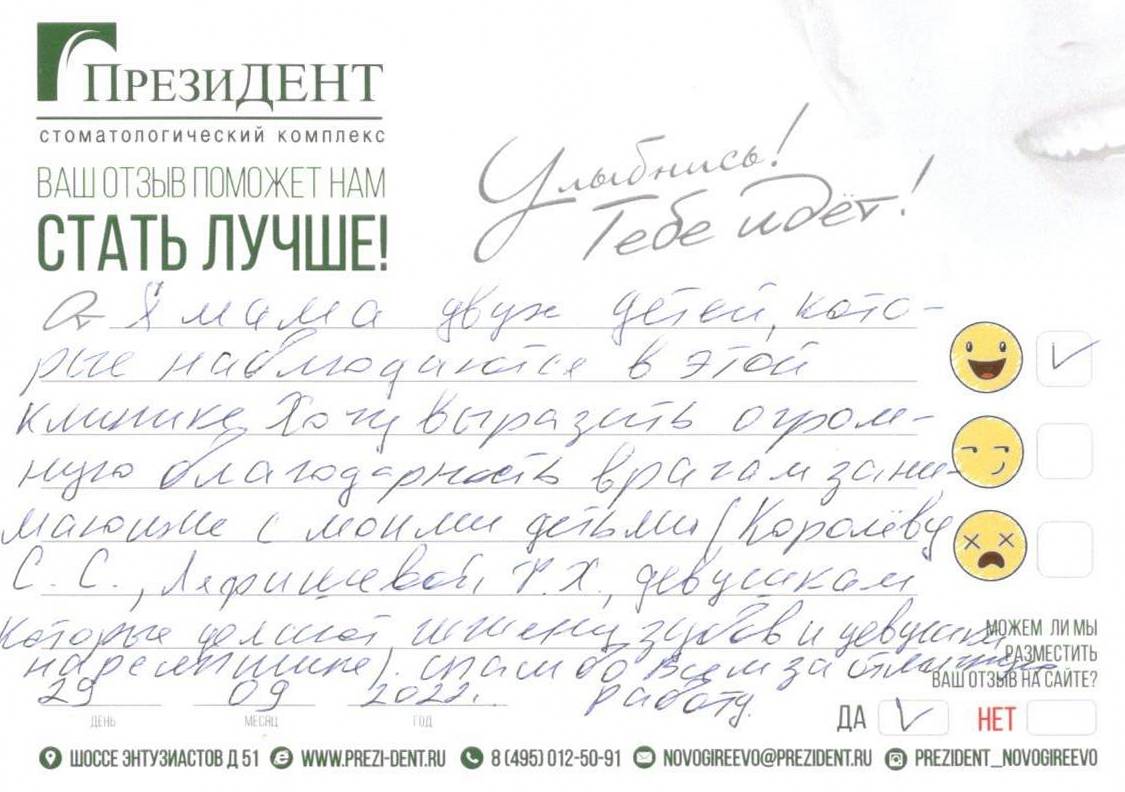 ПрезиДЕНТ
стоматологический комплекс
ВАШ ОТЗЫВ ПОМОЖЕТ НАМ
СТАТЬ ЛУЧШЕ!
Улыбнись!
Тебе идёт!
Я мама двух детей, кото-
рые наблюдаются в этой
клинике. Хочу выразить огром-
ную благодарность врачам зани-
мающие с моими детьми (Королёву
С. С., Ляфишевой Ф.Х., девушкам
которые делают гигиену зубов и девушки
на ресепшине). Спасибо всем за отличную
работу.
29 09 2022г.
ДЕНЬ МЕСЯЦ ГОД
МОЖЕМ ЛИ МЫ
РАЗМЕСТИТЬ
ВАШ ОТЗЫВ НА САЙТЕ?
ДА НЕТ
ШОССЕ ЭНТУЗИАСТОВ Д 51 WWW.PREZI-DENT.RU 8 (495) 012-50-91 NOVOGIREEVO@PREZIDENT.RU PREZIDENT_NOVOGIREEVO